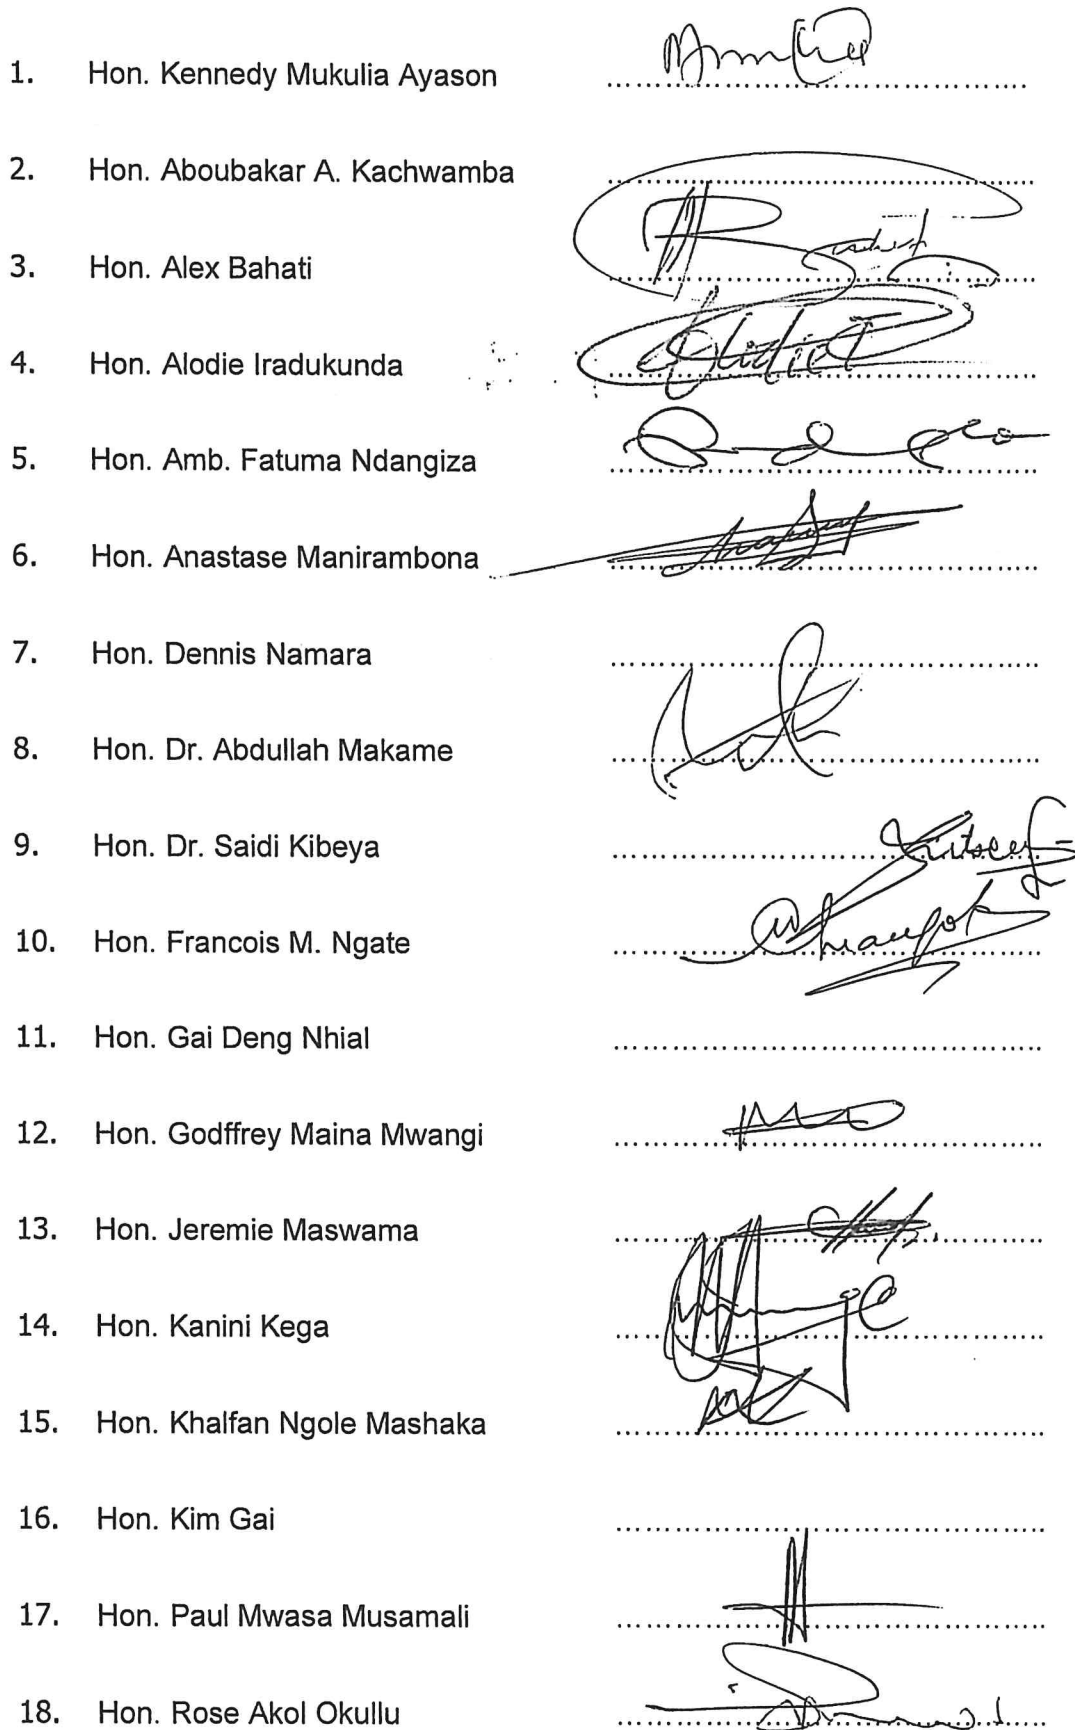 1. Hon. Kennedy Mukulia Ayason ..........................................
2. Hon. Aboubakar A. Kachwamba ..........................................
3. Hon. Alex Bahati ..........................................
4. Hon. Alodie Iradukunda ..........................................
5. Hon. Amb. Fatuma Ndangiza ..........................................
6. Hon. Anastase Manirambona ..........................................
7. Hon. Dennis Namara ..........................................
8. Hon. Dr. Abdullah Makame ..........................................
9. Hon. Dr. Saidi Kibeya ..........................................
10. Hon. Francois M. Ngate ..........................................
11. Hon. Gai Deng Nhial ..........................................
12. Hon. Godffrey Maina Mwangi ..........................................
13. Hon. Jeremie Maswama ..........................................
14. Hon. Kanini Kega ..........................................
15. Hon. Khalfan Ngole Mashaka ..........................................
16. Hon. Kim Gai ..........................................
17. Hon. Paul Mwasa Musamali ..........................................
18. Hon. Rose Akol Okullu ..........................................